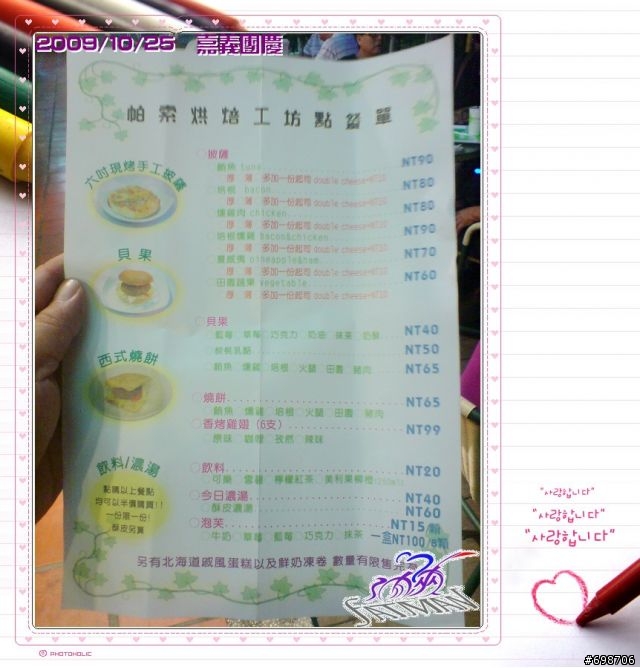 2009/10/25 嘉義國慶
帕索烘焙工坊點餐單
六吋現烤手工披薩
披薩
鮪魚 tuna NT90
厚 薄 多加一份起司 double cheese+NT10
培根 bacon NT80
厚 薄 多加一份起司 double cheese+NT10
燻雞肉 chicken NT80
厚 薄 多加一份起司 double cheese+NT10
培根燻雞 bacon&chicken NT90
厚 薄 多加一份起司 double cheese+NT10
夏威夷 pineapple&ham NT70
厚 薄 多加一份起司 double cheese+NT10
田園蔬果 vegetable NT60
厚 薄 多加一份起司 double cheese+NT10
貝果
貝果
藍莓 草莓 巧克力 奶油 抹茶 奶酥 NT40
乳酪 NT50
鮪魚 燻雞 培根 火腿 田園 豬肉 NT65
西式燒餅
燒餅 NT65
鮪魚 燻雞 培根 火腿 田園 豬肉
香烤雞翅 (6支) NT99
原味 咖哩 孜然 辣味
飲料/濃湯
點購以上餐點
均可以半價購買!!
一份限一份!
酥皮另算
飲料 NT20
可樂 雪碧 檸檬紅茶 美利果柳橙
今日濃湯 NT40
酥皮濃湯 NT60
泡芙 NT15/顆
牛奶 草莓 藍莓 巧克力 抹茶 一盒NT100/8顆
另有北海道戚風蛋糕以及鮮奶凍卷 數量有限售完為
JATMAN
"사랑합니다"
"사랑합니다"
"사랑합니다"
PHOTOHOLIC
#698706